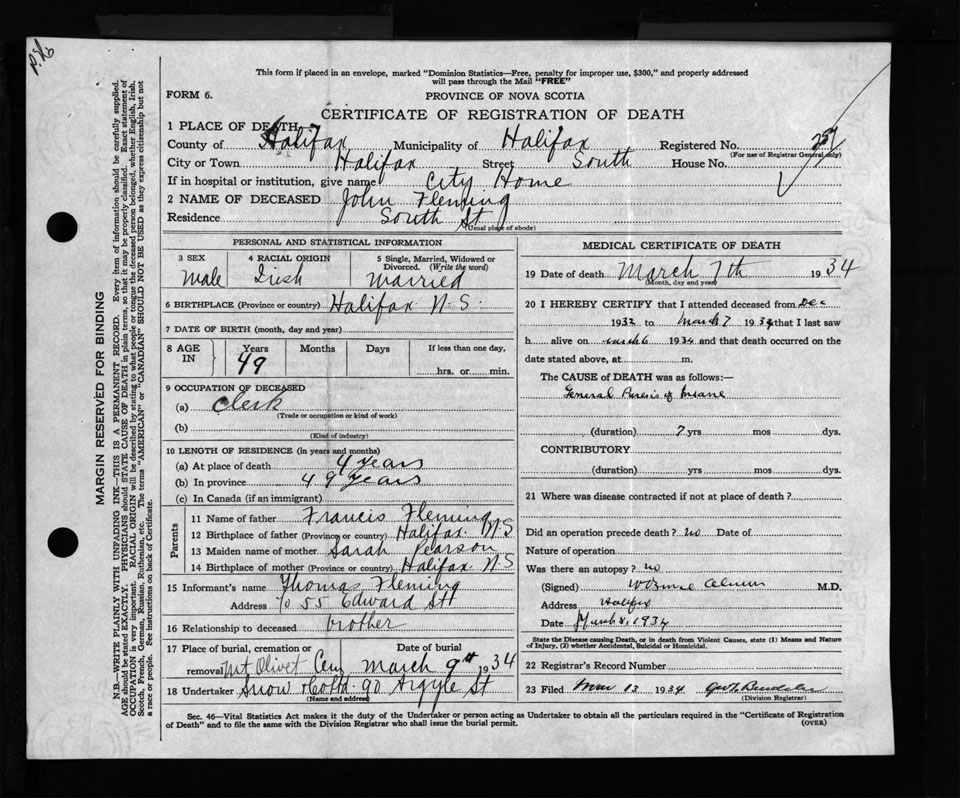 This form if placed in an envelope, marked "Dominion Statistics—Free, penalty for improper use, $300," and properly addressed
will pass through the Mail "FREE"
FORM 6.
PROVINCE OF NOVA SCOTIA
CERTIFICATE OF REGISTRATION OF DEATH
1 PLACE OF DEATH
County of Halifax Municipality of Halifax Registered No. 257
(For use of Registrar General only)
City or Town Halifax Street South House No.
If in hospital or institution, give name City Home
2 NAME OF DECEASED John Fleming
Residence South St
(Usual place of abode)
MARGIN RESERVED FOR BINDING
N.B.—WRITE PLAINLY WITH UNFADING INK—THIS IS A PERMANENT RECORD. Every item of information should be carefully supplied.
AGE should be stated EXACTLY. PHYSICIANS should STATE CAUSE OF DEATH in plain terms, so that it may be properly classified. Exact statement of
OCCUPATION is very important. RACIAL ORIGIN will be described by stating to what people or tongue the deceased person belonged, whether English, Irish,
Scotch, French, German, Russian, Ruthenian, etc. The terms "AMERICAN" or "CANADIAN" SHOULD NOT BE USED as they express citizenship but not
a race or people. See instructions on back of Certificate.
PERSONAL AND STATISTICAL INFORMATION
3 SEX 4 RACIAL ORIGIN 5 Single, Married, Widowed or
Divorced. (Write the word)
Male Irish Married
6 BIRTHPLACE (Province or country) Halifax N.S.
7 DATE OF BIRTH (month, day and year)
8 AGE IN Years Months Days If less than one day,
49 hrs. or min.
9 OCCUPATION OF DECEASED
(a) Clerk
(Trade or occupation or kind of work)
(b)
(Kind of industry)
10 LENGTH OF RESIDENCE (in years and months)
(a) At place of death 4 years
(b) In province 49 years
(c) In Canada (if an immigrant)
Parents
11 Name of father Francis Fleming
12 Birthplace of father (Province or country) Halifax N.S
13 Maiden name of mother Sarah Pearson
14 Birthplace of mother (Province or country) Halifax N.S
15 Informant's name Thomas Fleming
Address 55 Edward St
16 Relationship to deceased brother
17 Place of burial, cremation or Date of burial
removal Mt Olivet Cem March 9th 1934
18 Undertaker Snow & Co Ltd 90 Argyle St
(Name and address)
MEDICAL CERTIFICATE OF DEATH
19 Date of death March 7th 1934
(Month, day and year)
20 I HEREBY CERTIFY that I attended deceased from Dec
1932 to March 7 1934 that I last saw
h alive on March 6 1934 and that death occurred on the
date stated above, at m.
The CAUSE of DEATH was as follows:—
General Paresis of Insane
(duration) 7 yrs mos dys.
CONTRIBUTORY
(duration) yrs mos dys.
21 Where was disease contracted if not at place of death?
Did an operation precede death? no Date of
Nature of operation
Was there an autopsy? no
(Signed) M.D.
Address Halifax
Date March 8, 1934
State the Disease causing Death, or in death from Violent Causes, state (1) Means and Nature
of Injury, (2) whether Accidental, Suicidal or Homicidal.
22 Registrar's Record Number
23 Filed Mar 13 1934
(Division Registrar)
Sec. 46—Vital Statistics Act makes it the duty of the Undertaker or person acting as Undertaker to obtain all the particulars required in the "Certificate of Registration
of Death" and to file the same with the Division Registrar who shall issue the burial permit.
(OVER)